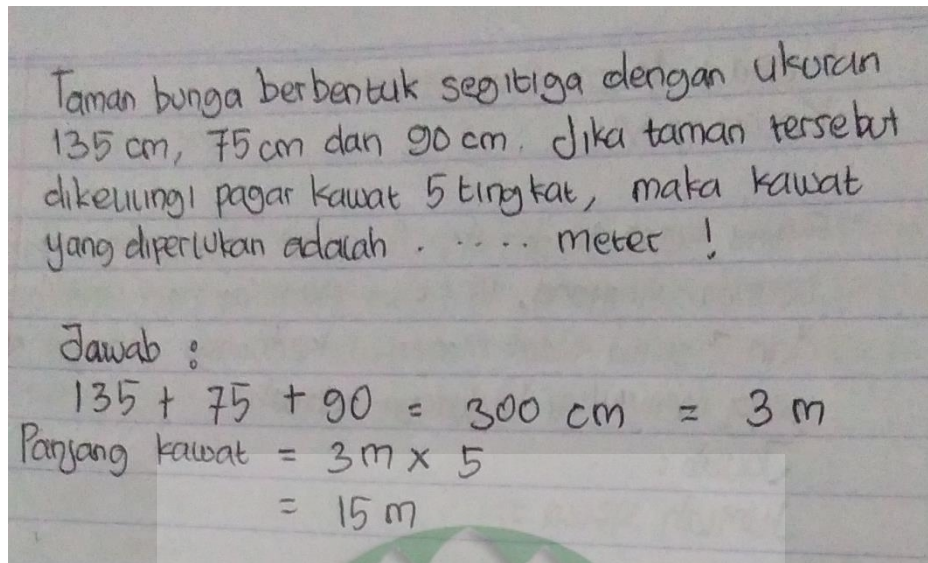 Taman bunga berbentuk segitiga dengan ukuran
135 cm, 75 cm dan 90 cm. Jika taman tersebut
dikelilingi pagar kawat 5 tingkat, maka kawat
yang diperlukan adalah . . . . . . meter !
Jawab :
135 + 75 + 90 = 300 cm = 3 m
Panjang kawat = 3 m × 5
= 15 m